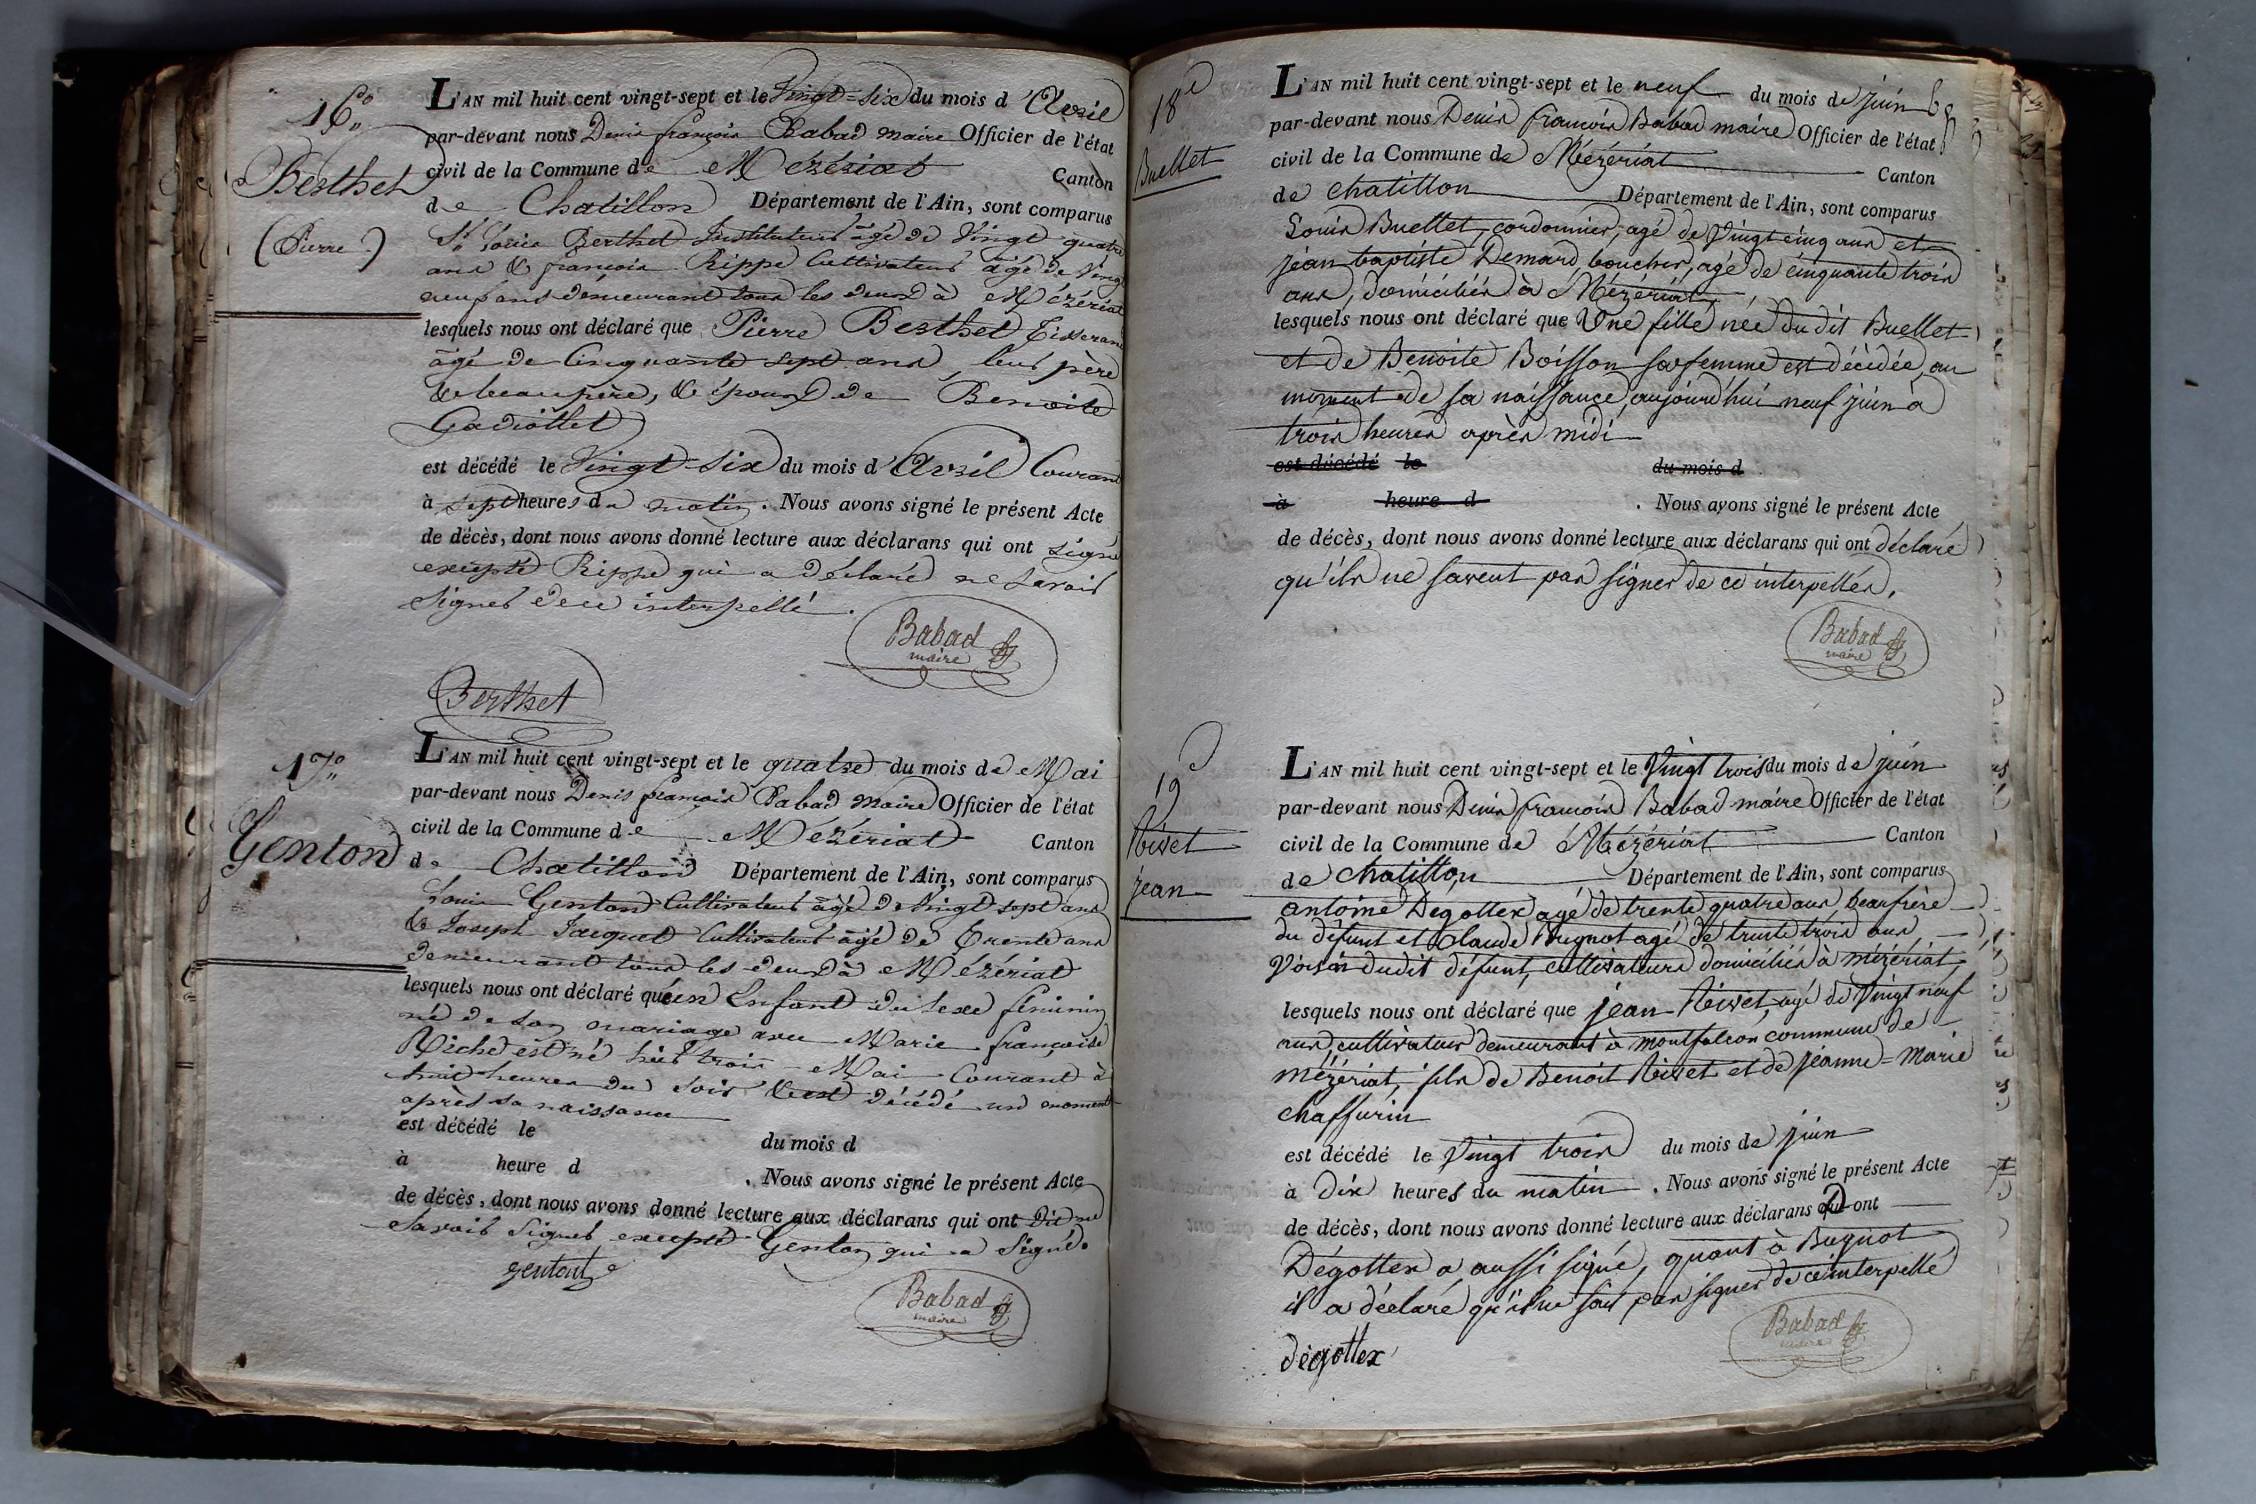 16°
Berthet
(Pierre)
L'AN mil huit cent vingt-sept et le Vingt-six du mois d'Avril
par-devant nous Denis françois Babad maire Officier de l'état
civil de la Commune de Mézériat Canton
de Chatillon Département de l'Ain, sont comparus
Sr Louis Berthet Instituteur âgé de Vingt quatre
ans & françois Rippe Cultivateur âgé de Vingt
neuf ans demeurant tous les deux à Mézériat
lesquels nous ont déclaré que Pierre Berthet Tisserand
âgé de Cinquante sept ans, leur père
& beaupère, & époux de Benoite
Gadiollet
est décédé le Vingt-six du mois d'Avril Courant
à sept heures du matin. Nous avons signé le présent Acte
de décès, dont nous avons donné lecture aux déclarans qui ont signé
excepté Rippe qui a déclaré ne savoir
signer de ce interpellé.
Babad
maire
Berthet
17°
Genton
L'AN mil huit cent vingt-sept et le quatre du mois de Mai
par-devant nous Denis françois Babad maire Officier de l'état
civil de la Commune de Mézériat Canton
de Chatillon Département de l'Ain, sont comparus
Louis Genton Cultivateur âgé de Vingt sept ans
& Joseph Jacquet Cultivateur âgé de Trente ans
demeurant tous les deux à Mézériat
lesquels nous ont déclaré qu'un Enfant du Sexe féminin
né de son mariage avec Marie françoise
Riche est né hier trois Mai Courant à
huit heures du soir & est décédé un moment
après sa naissance
est décédé le du mois d
à heure d . Nous avons signé le présent Acte
de décès, dont nous avons donné lecture aux déclarans qui ont dit ne
savoir signer excepté Genton qui a signé.
genton
Babad
maire
18e
Buellet
L'AN mil huit cent vingt-sept et le neuf du mois de juin
par-devant nous Denis françois Babad maire Officier de l'état
civil de la Commune de Mézériat Canton
de chatillon Département de l'Ain, sont comparus
Louis Buellet, cordonnier, agé de vingt cinq ans et
jean baptiste Demard, boucher, agé de cinquante trois
ans, domiciliés à Mézériat,
lesquels nous ont déclaré que Une fille née du dit Buellet
et de Benoite Boisson sa femme est décédée, au
moment de sa naissance, aujourd'hui neuf juin à
trois heures après midi
est décédé le du mois d
à heure d . Nous avons signé le présent Acte
de décès, dont nous avons donné lecture aux déclarans qui ont déclaré
qu'ils ne savent pas signer de ce interpellés.
Babad
maire
19e
Nivet
jean
L'AN mil huit cent vingt-sept et le Vingt trois du mois de juin
par-devant nous Denis françois Babad maire Officier de l'état
civil de la Commune de Mézériat Canton
de chatillon Département de l'Ain, sont comparus
antoine Degottex agé de trente quatre ans beaufrère
du défunt et Claude Bugnot agé de trente trois ans,
voisin dudit défunt, cultivateurs domiciliés à mézériat,
lesquels nous ont déclaré que jean Nivet, agé de Vingt neuf
ans, cultivateur demeurant à montfalcon commune de
mézériat, fils de Benoit Nivet et de jeanne-Marie
chaffurin
est décédé le Vingt trois du mois de juin
à dix heures du matin. Nous avons signé le présent Acte
de décès, dont nous avons donné lecture aux déclarans ont
Dégottex a aussi signé, quant à Bugnot
il a déclaré qu'il ne sait pas signer de ce interpellé
Babad
maire
dégottex